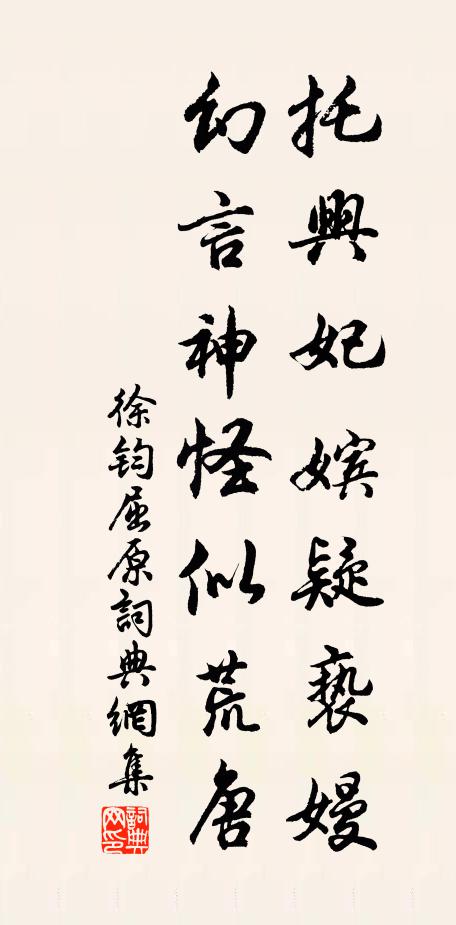 托興妃嬪疑褻嫚
幻言神怪似荒唐
徐鈞屈原詞典網集
詞典網印